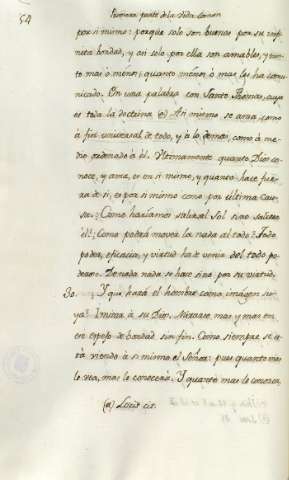 54 Primera parte de la Vida comun
por si mismo: porque solo son buenas por su infi-
nita bondad, y asi solo por ella son amables, y tan-
to mas ò menos; quanto menos, ò mas les ha comu-
nicado. En una palabra con Santo Thomas, cuya
es toda la doctrina (a) Asi mismo se ama, como
à fin universal de todo, y à lo demas, como à me-
dio ordenado à él. Ultimamente quanto Dios co-
noce, y ama, es en si mismo, y quanto hace fue-
ra de si, es por si mismo como por última Cau-
sa. ¿Como hariamos salir al Sol sino saliese
él? ¿Como podrá mover la nada al todo? Todo
poder, eficacia, y virtud ha de venir del todo po-
deroso. De nada nada se hace sino por su virtud.
30. Y que hará el hombre como imágen su-
ya? Imitar à su Dios. Mirarse mas y mas en
ese espejo de bondad sin fin. Como siempre se es-
tá viendo à si mismo el Señor: pues quanto mas
le vea, mas le conocerá. Y quanto mas le conozca,
(a) Locit cit.